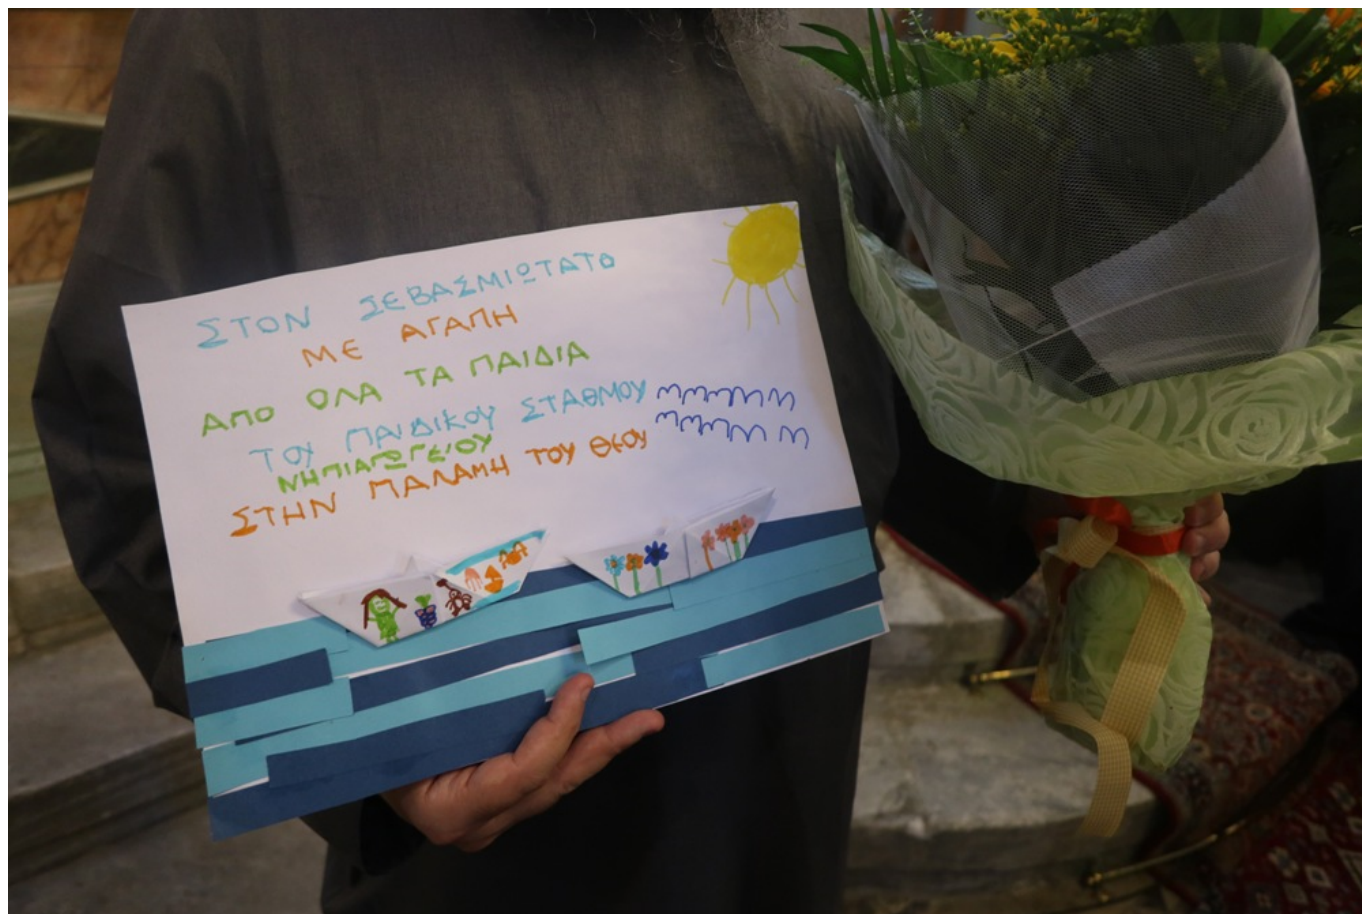 ΣΤΟΝ ΣΕΒΑΣΜΙΩΤΑΤΟ
ΜΕ ΑΓΑΠΗ
ΑΠΟ ΟΛΑ ΤΑ ΠΑΙΔΙΑ
ΤΟΥ ΠΑΙΔΙΚΟΥ ΣΤΑΘΜΟΥ
ΝΗΠΙΑΓΩΓΕΙΟΥ
ΣΤΗΝ ΠΑΛΑΜΗ ΤΟΥ ΘΕΟΥ